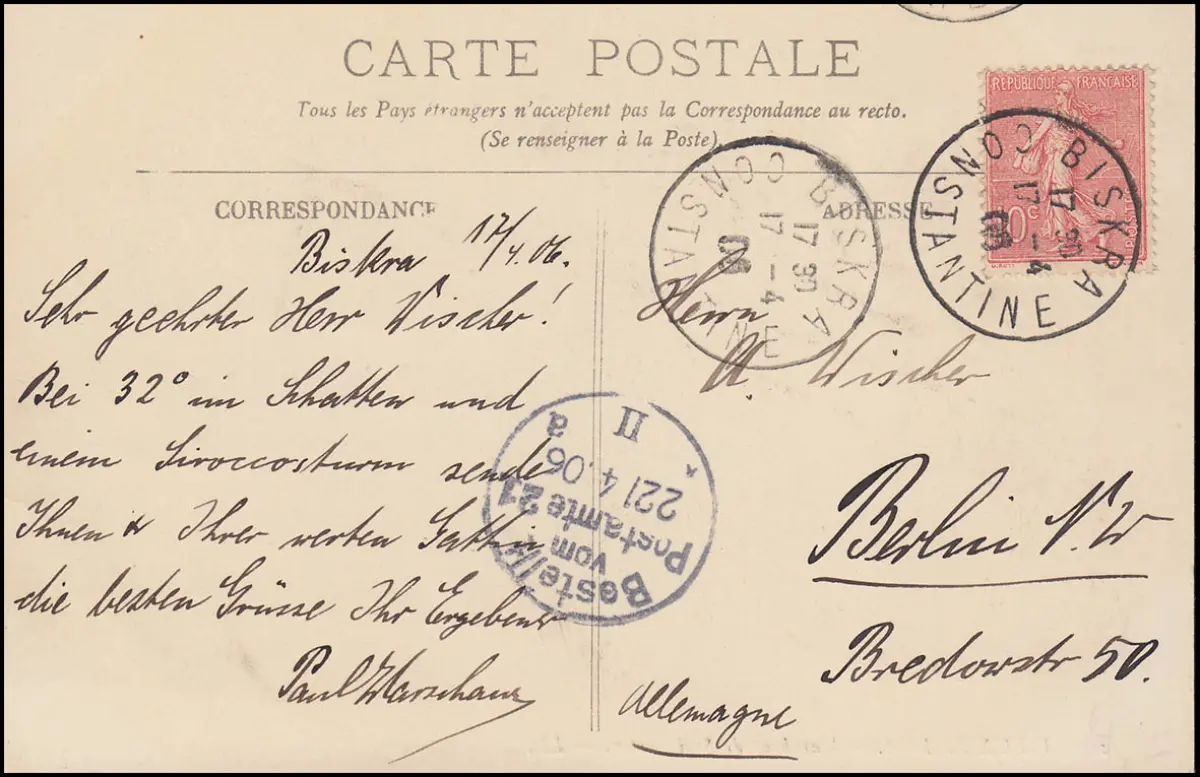 CARTE POSTALE
Tous les Pays étrangers n'acceptent pas la Correspondance au recto.
(Se renseigner à la Poste).
CORRESPONDANCE
ADRESSE
RÉPUBLIQUE FRANÇAISE
10c
BISKRA
17 30
17 -4
06
CONSTANTINE
BISKRA
17 30
17 -4
06
CONSTANTINE
Biskra 17/4.06.
Sehr geehrter Herr Wischer!
Bei 32° im Schatten und
einem Siroccosturm sende
Ihnen & Ihrer werten Gattin
die besten Grüsse Ihr Ergebener
Paul Warschauer
Herrn
A. Wischer
Berlin N.W
Bredowstr 50.
Allemagne
Bestellt
vom
Postamte 21
22/4.06
II a